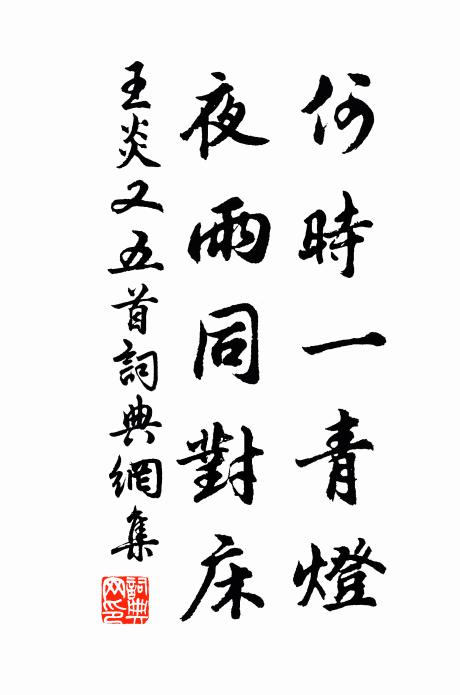 何時一青燈
夜雨同對床
王炎又五首詞典網集
詞典網印